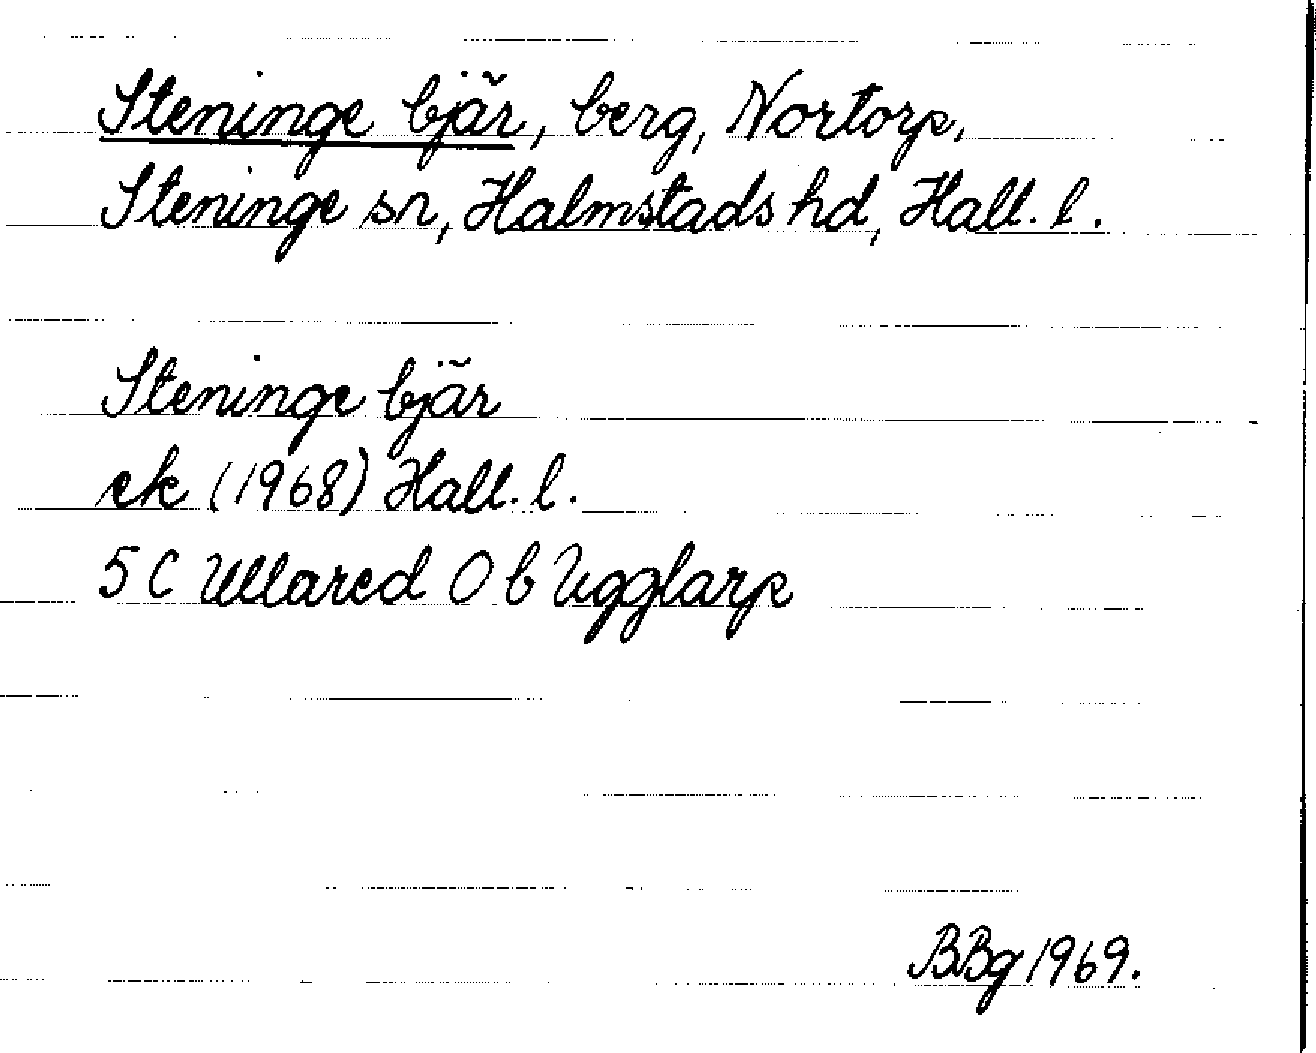 Steninge bjär, berg, Nortorp,
Steninge sn, Halmstads hd, Hall. l.
Steninge bjär
ek (1968) Hall. l.
5 C Ullared O b Ugglarp
BBg 1969.